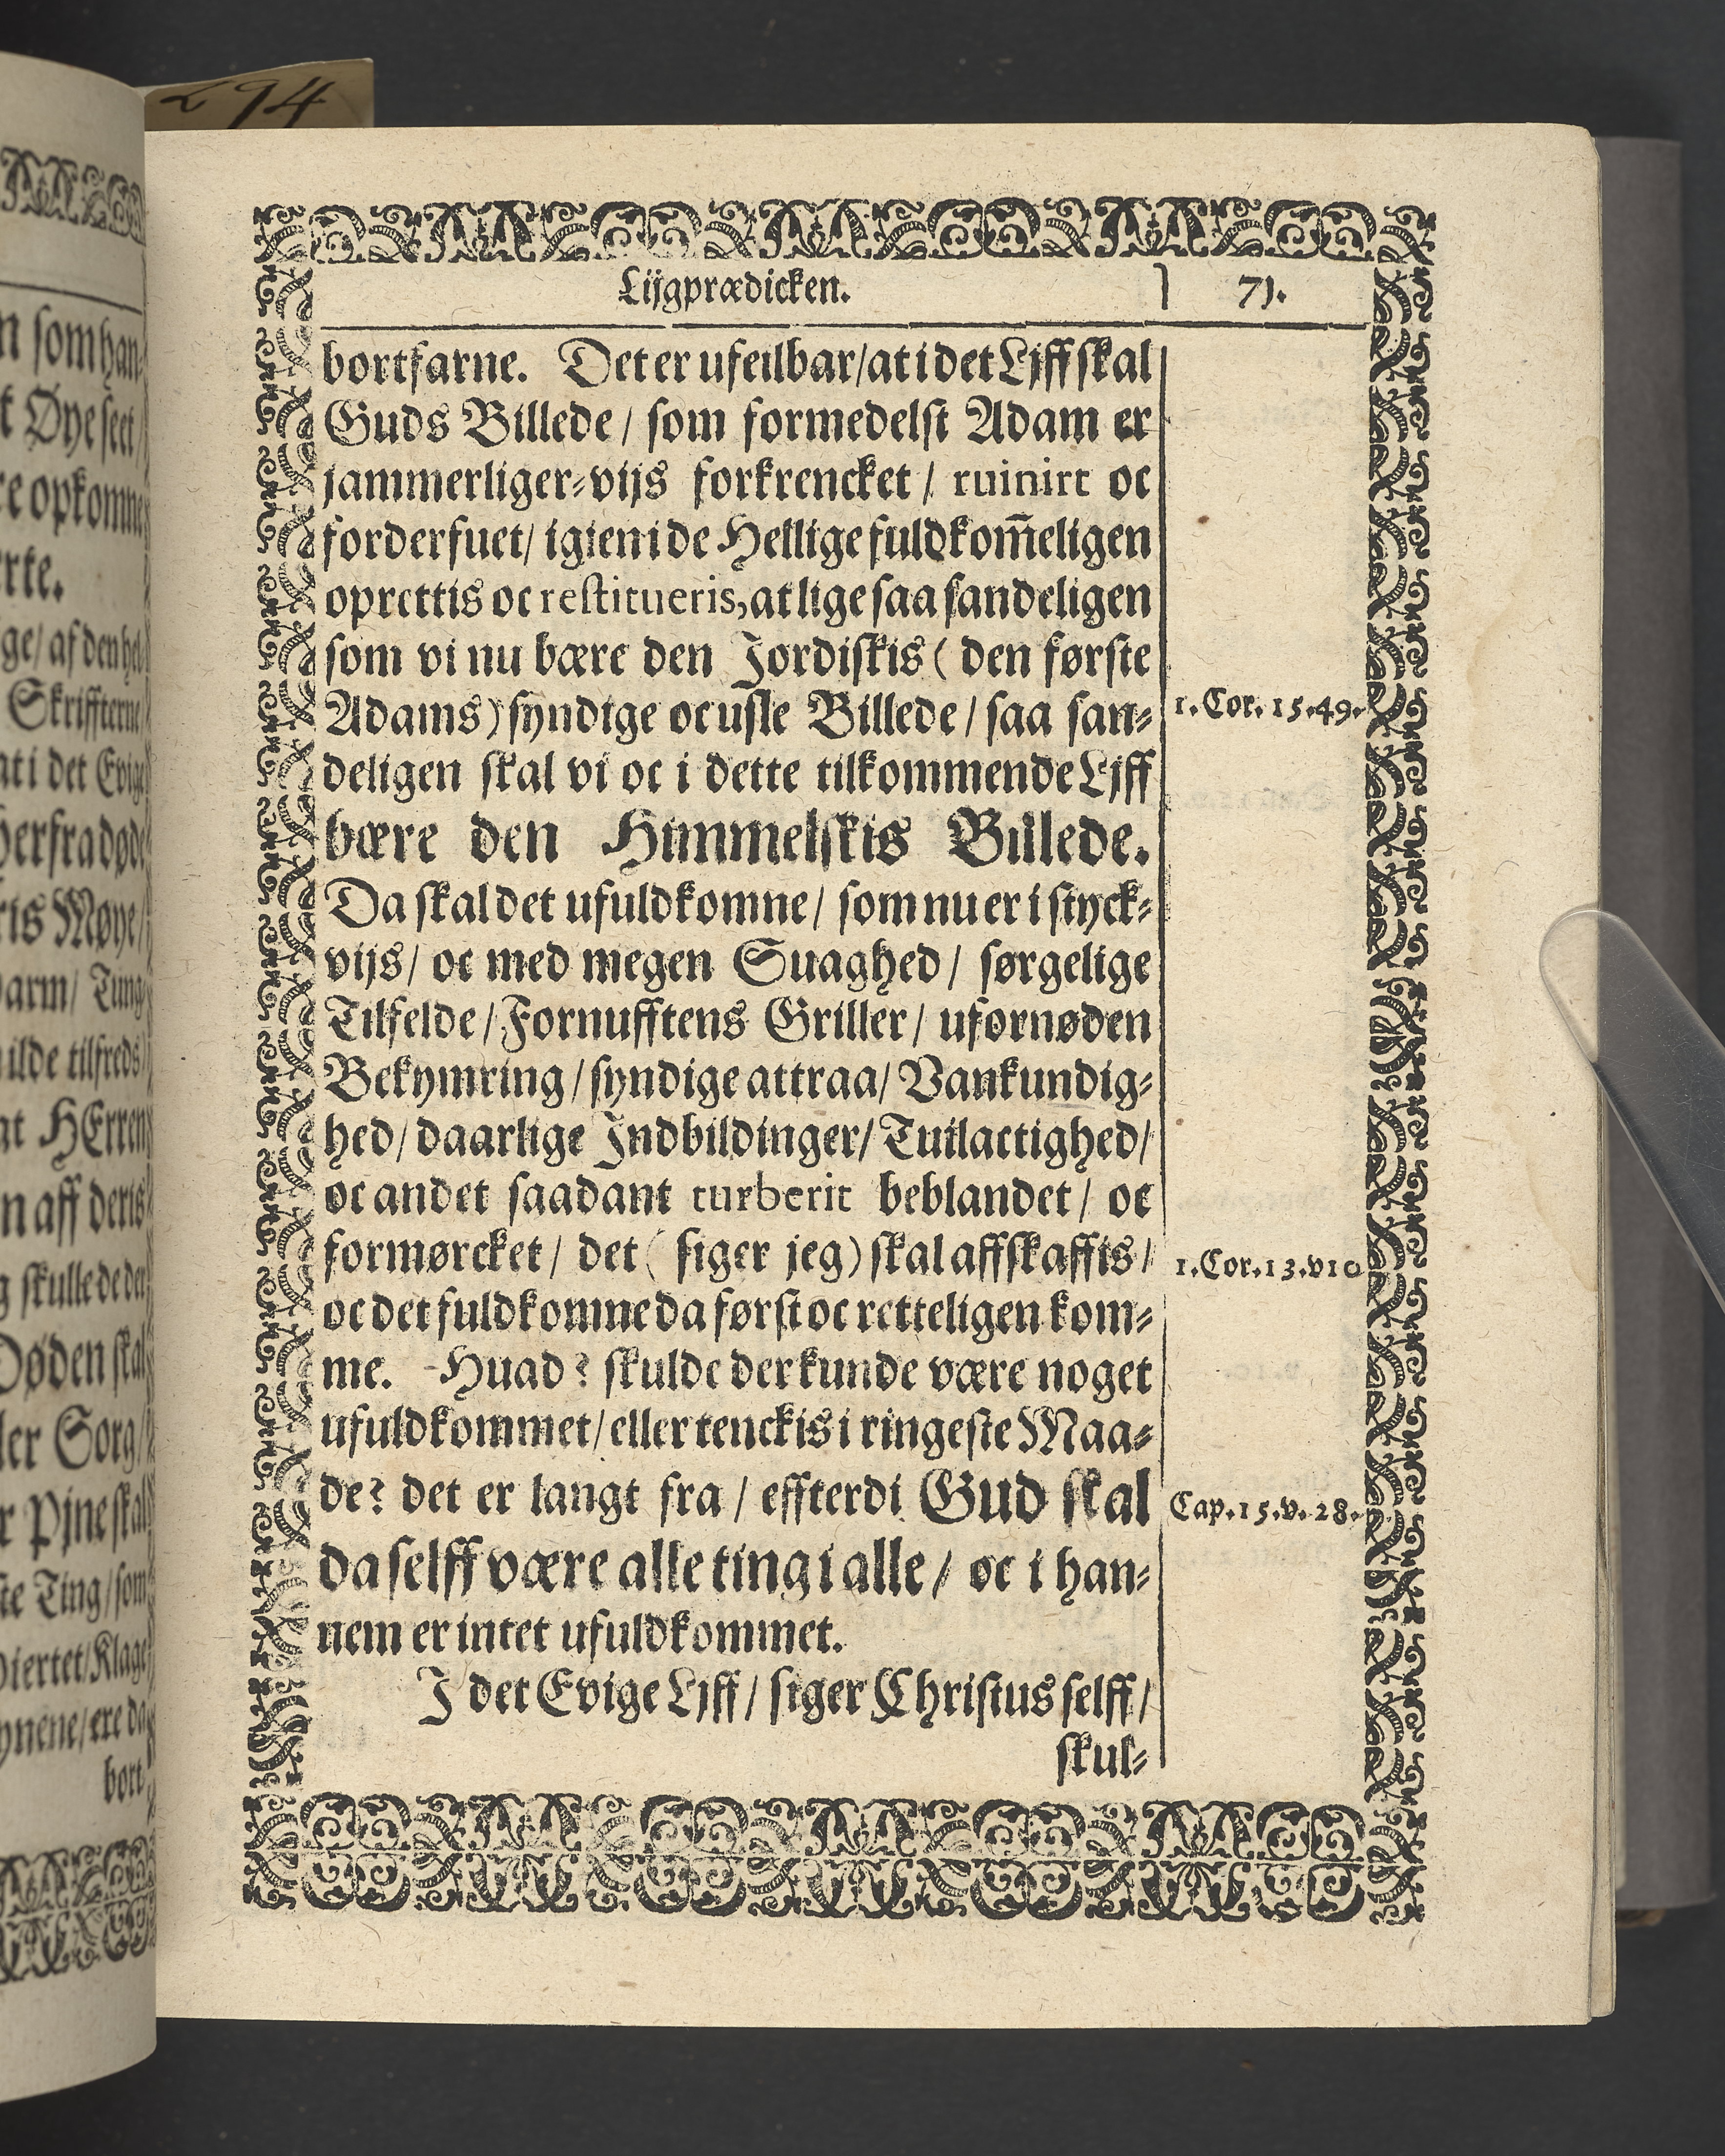 294
n som han-
t Øye seet/
re opkomne
rke.
ge/ af den hel-
Skrifftern/
at i det Evige
herfra døde
ris Møye/
arm/ Tung-
ilde tilfreds/
at HErren
n aff deris
g skulle de der
Døden skal
ler Sorg/
r Pjne skal
ste Ting/ som
Hiertet/ Klage
ynene/ ere da
bort-
Lijgprædicken. 71.
bortfarne. Det er ufeilbar/ at i det Ljff skal
Guds Billede/ som formedelst Adam er
jammerliger-vijs forkrencket/ ruinirt oc
forderfuet/ igien i de Hellige fuldkom̃eligen
oprettis oc restitueris, at lige saa sandeligen
som vi nu bære den Jordiskis (den første
Adams) syndige oc usle Billede/ saa san-
1. Cor. 15. 49.
deligen skal vi oc i dette tilkommende Ljff
bære den Himmelskis Billede.
Da skal det ufuldkomne/ som nu er i styck-
vijs/ oc med megen Suaghed/ sørgelige
Tilfelde/ Fornufftens Griller/ ufornøden
Bekymring/ syndige attraa/ Vankundig-
hed/ daarlige Indbildinger/ Tuilactighed/
oc andet saadant turberit beblandet/ oc
formørcket/ det (siger jeg) skal affskaffis/
1. Cor. 13. v 10
oc det fuldkomne da først oc retteligen kom-
me. Huad? skulde der kunde være noget
ufuldkommet/ eller tenckis i ringeste Maa-
de? det er langt fra/ effterdi Gud skal
Cap. 15. v. 28.
da selff være alle ting i alle/ oc i han-
nem er intet ufuldkommet.
I det Evige Ljff/ siger Christus selff/
skul-